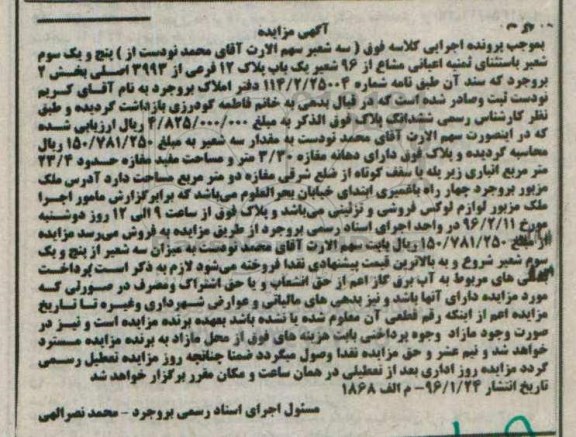 آگهی مزایده
بموجب پرونده اجرایی کلاسه فوق ( سه شعیر سهم الارث آقای محمد نودست از ) پنج و یک سوم
شعیر باستثنای ثمنیه اعیانی مشاع از ۹۶ شعیر یک باب پلاک ۱۲ فرعی از ۳۹۹۳ اصلی بخش ۲
بروجرد که سند آن طبق نامه شماره ۱۱۴/۲/۲۵۰۰۴ دفتر املاک بروجرد به نام آقای کریم
نودست ثبت وصادر شده است که در قبال بدهی به خانم فاطمه گودرزی بازداشت گردیده و طبق
نظر کارشناس رسمی ششدانگ پلاک فوق الذکر به مبلغ ۴/۸۲۵/۰۰۰/۰۰۰ ریال ارزیابی شده
که در اینصورت سهم الارث آقای محمد نودست به مقدار سه شعیر به مبلغ ۱۵۰/۷۸۱/۲۵۰ ریال
محاسبه گردیده و پلاک فوق دارای دهانه مغازه ۳/۳۰ متر و مساحت مفید مغازه حدود ۲۳/۴
متر مربع انباری زیر پله با سقف کوتاه از ضلع شرقی مغازه دو متر مربع مساحت دارد آدرس ملک
مزبور بروجرد چهار راه باغمیری ابتدای خیابان بحرالعلوم می‌باشد که برابر گزارش مامور اجرا
ملک مزبور لوازم لوکس فروشی و تزئینی می‌باشد و پلاک فوق از ساعت ۹ الی ۱۲ روز دوشنبه
مورخ ۹۶/۲/۱۱ در واحد اجرای اسناد رسمی بروجرد از طریق مزایده به فروش می‌رسد مزایده
از مبلغ ۱۵۰/۷۸۱/۲۵۰ ریال بابت سهم الارث آقای محمد نودست به میزان سه شعیر از پنج و یک
سوم شعیر شروع و به بالاترین قیمت پیشنهادی نقدا فروخته می‌شود لازم به ذکر است پرداخت
بدهی های مربوط به آب برق گاز اعم از حق انشعاب و یا حق اشتراک ومصرف در صورتی که
مورد مزایده دارای آنها باشد و نیز بدهی های مالیاتی و عوارض شهرداری وغیره تا تاریخ
مزایده اعم از اینکه رقم قطعی آن معلوم شده یا نشده باشد بعهده برنده مزایده است و نیز در
صورت وجود مازاد وجوه پرداختی بابت هزینه های فوق از محل مازاد به برنده مزایده مسترد
خواهد شد و نیم عشر و حق مزایده نقدا وصول میگردد ضمنا چنانچه روز مزایده تعطیل رسمی
گردد مزایده روز اداری بعد از تعطیلی در همان ساعت و مکان مقرر برگزار خواهد شد
تاریخ انتشار ۹۶/۱/۲۴- م الف ۱۸۶۸
مسئول اجرای اسناد رسمی بروجرد - محمد نصرالهی